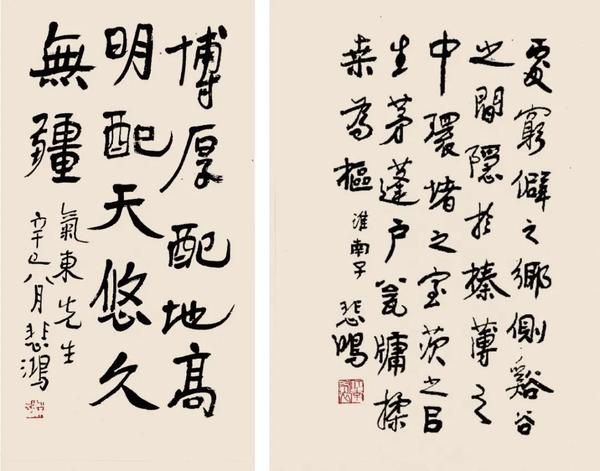 博厚配地高
明配天悠久
無疆
氣東先生
辛巳八月悲鴻
處窮僻之鄉側谿谷
之間隱於榛薄之
中環堵之室茨之以
生茅蓬戶瓮牖揉
桑為樞 淮南子 悲鴻